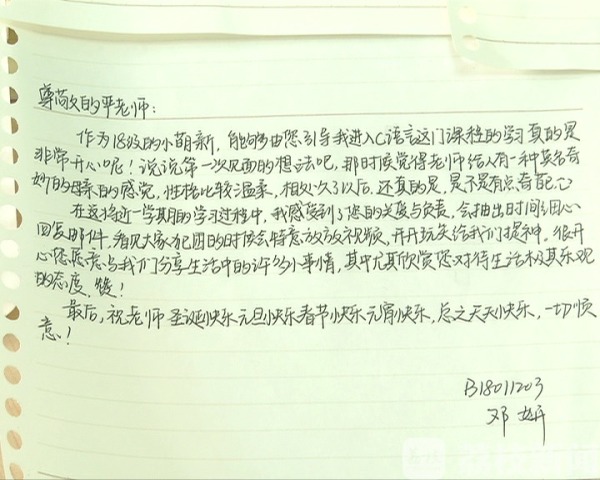 尊敬的严老师：
作为18级的小萌新，能够由您引导我进入C语言这门课程的学习真的是
非常开心呢！说说第一次见面的想法吧，那时候觉得老师给人有一种莫名奇
妙的母亲的感觉，性格比较温柔，相处久了以后，还真的是，是不是有点奇葩
在这将近一学期的学习过程中，我感受到了您的关爱与负责，会抽出时间细心
回复邮件，看见大家犯困的时候会特意放放视频，开开玩笑给我们提神，很开
心您愿意与我们分享生活中的许多小事情，其中尤其欣赏您对待生活极其乐观
的态度，赞！
最后，祝老师圣诞快乐元旦快乐春节快乐元宵快乐，总之天天快乐，一切顺
意！
B18011203
邓妍